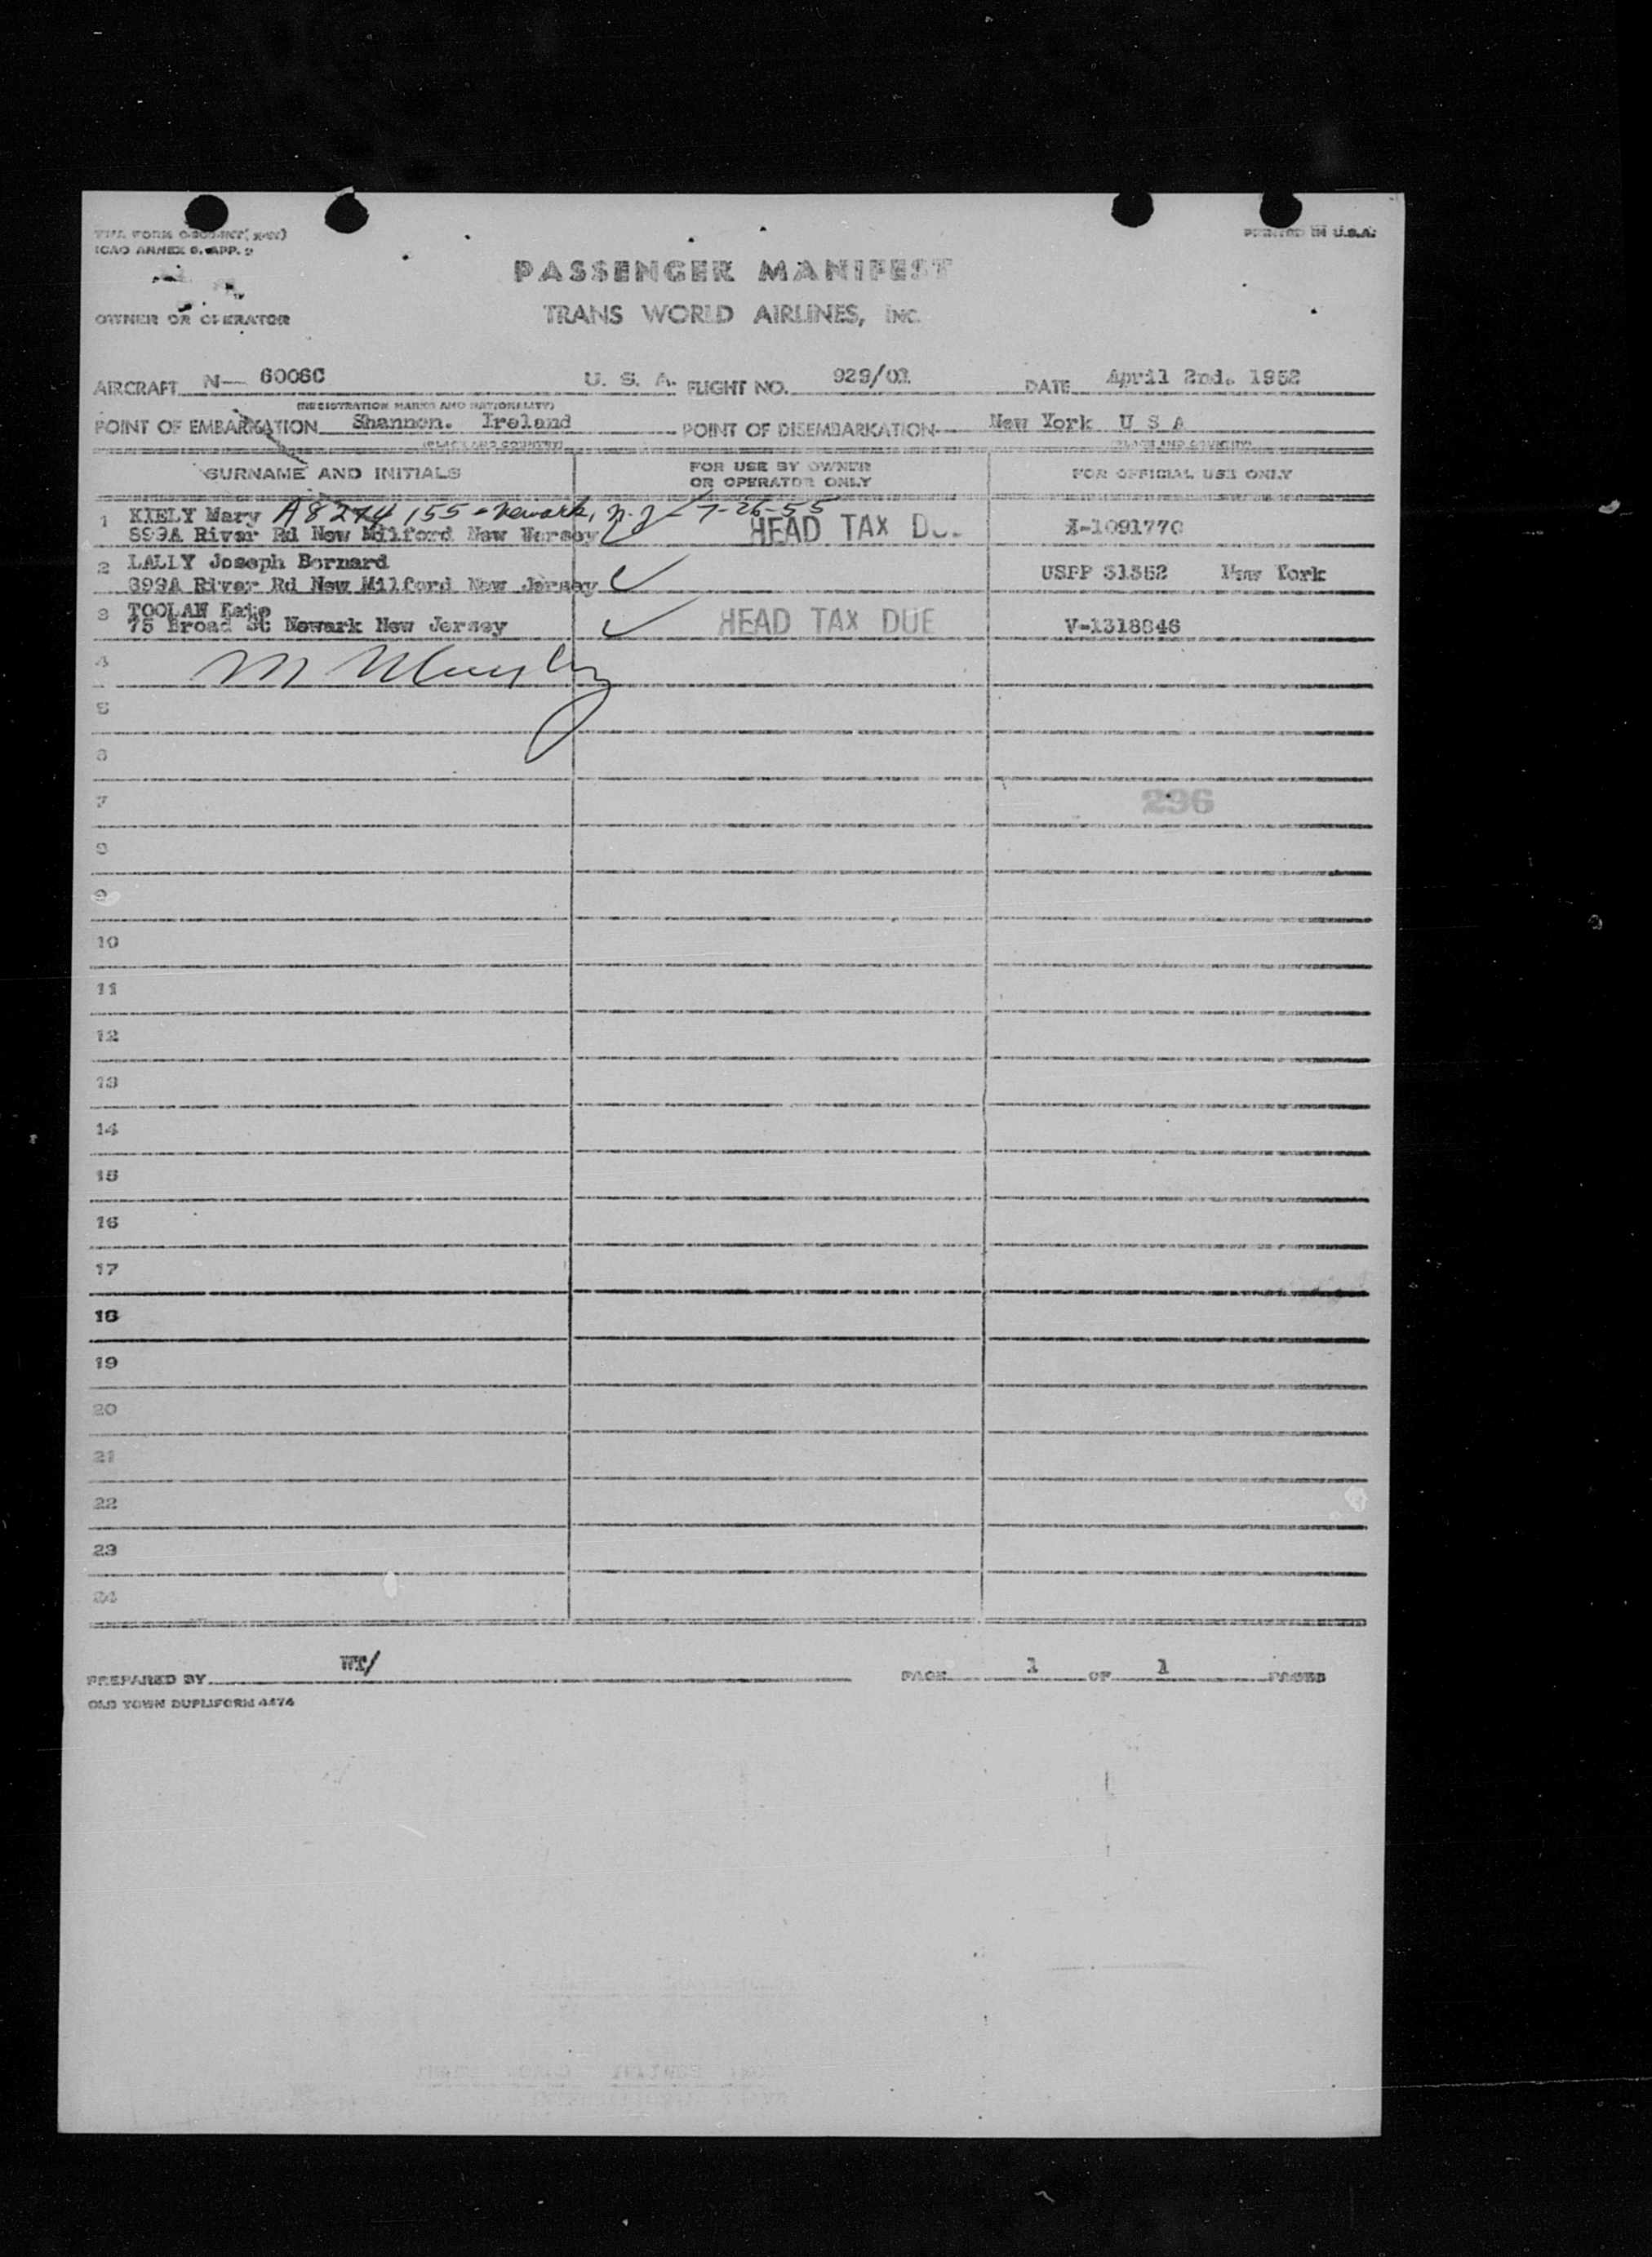 PRINTED IN U.S.A.
ICAO ANNEX 9, APP. 9
PASSENGER MANIFEST
OWNER OR OPERATOR
TRANS WORLD AIRLINES, INC.
AIRCRAFT N— 6006C U. S. A. FLIGHT NO. 929/01 DATE April 2nd. 1952
(REGISTRATION MARKS AND NATIONALITY)
POINT OF EMBARKATION Shannon. Ireland POINT OF DISEMBARKATION New York U S A
(PLACE AND COUNTRY) (PLACE AND COUNTRY)
SURNAME AND INITIALS FOR USE BY OWNER OR OPERATOR ONLY FOR OFFICIAL USE ONLY
1 KIELY Mary A8 274 155 - Newark, N.J - 7-26-55
899A River Rd New Milford New Jersey HEAD TAX DU. X-1091770
2 LALLY Joseph Bernard
899A River Rd New Milford New Jersey USPP 31352 New York
3 TOOLAN Kate
75 Broad St Newark New Jersey HEAD TAX DUE V-1318846
4 M
5
6
7 296
8
9
10
11
12
13
14
15
16
17
18
19
20
21
22
23
24
PREPARED BY WT/ PAGE 1 OF 1 PAGES
OLD TOWN DUPLIFORM 4474